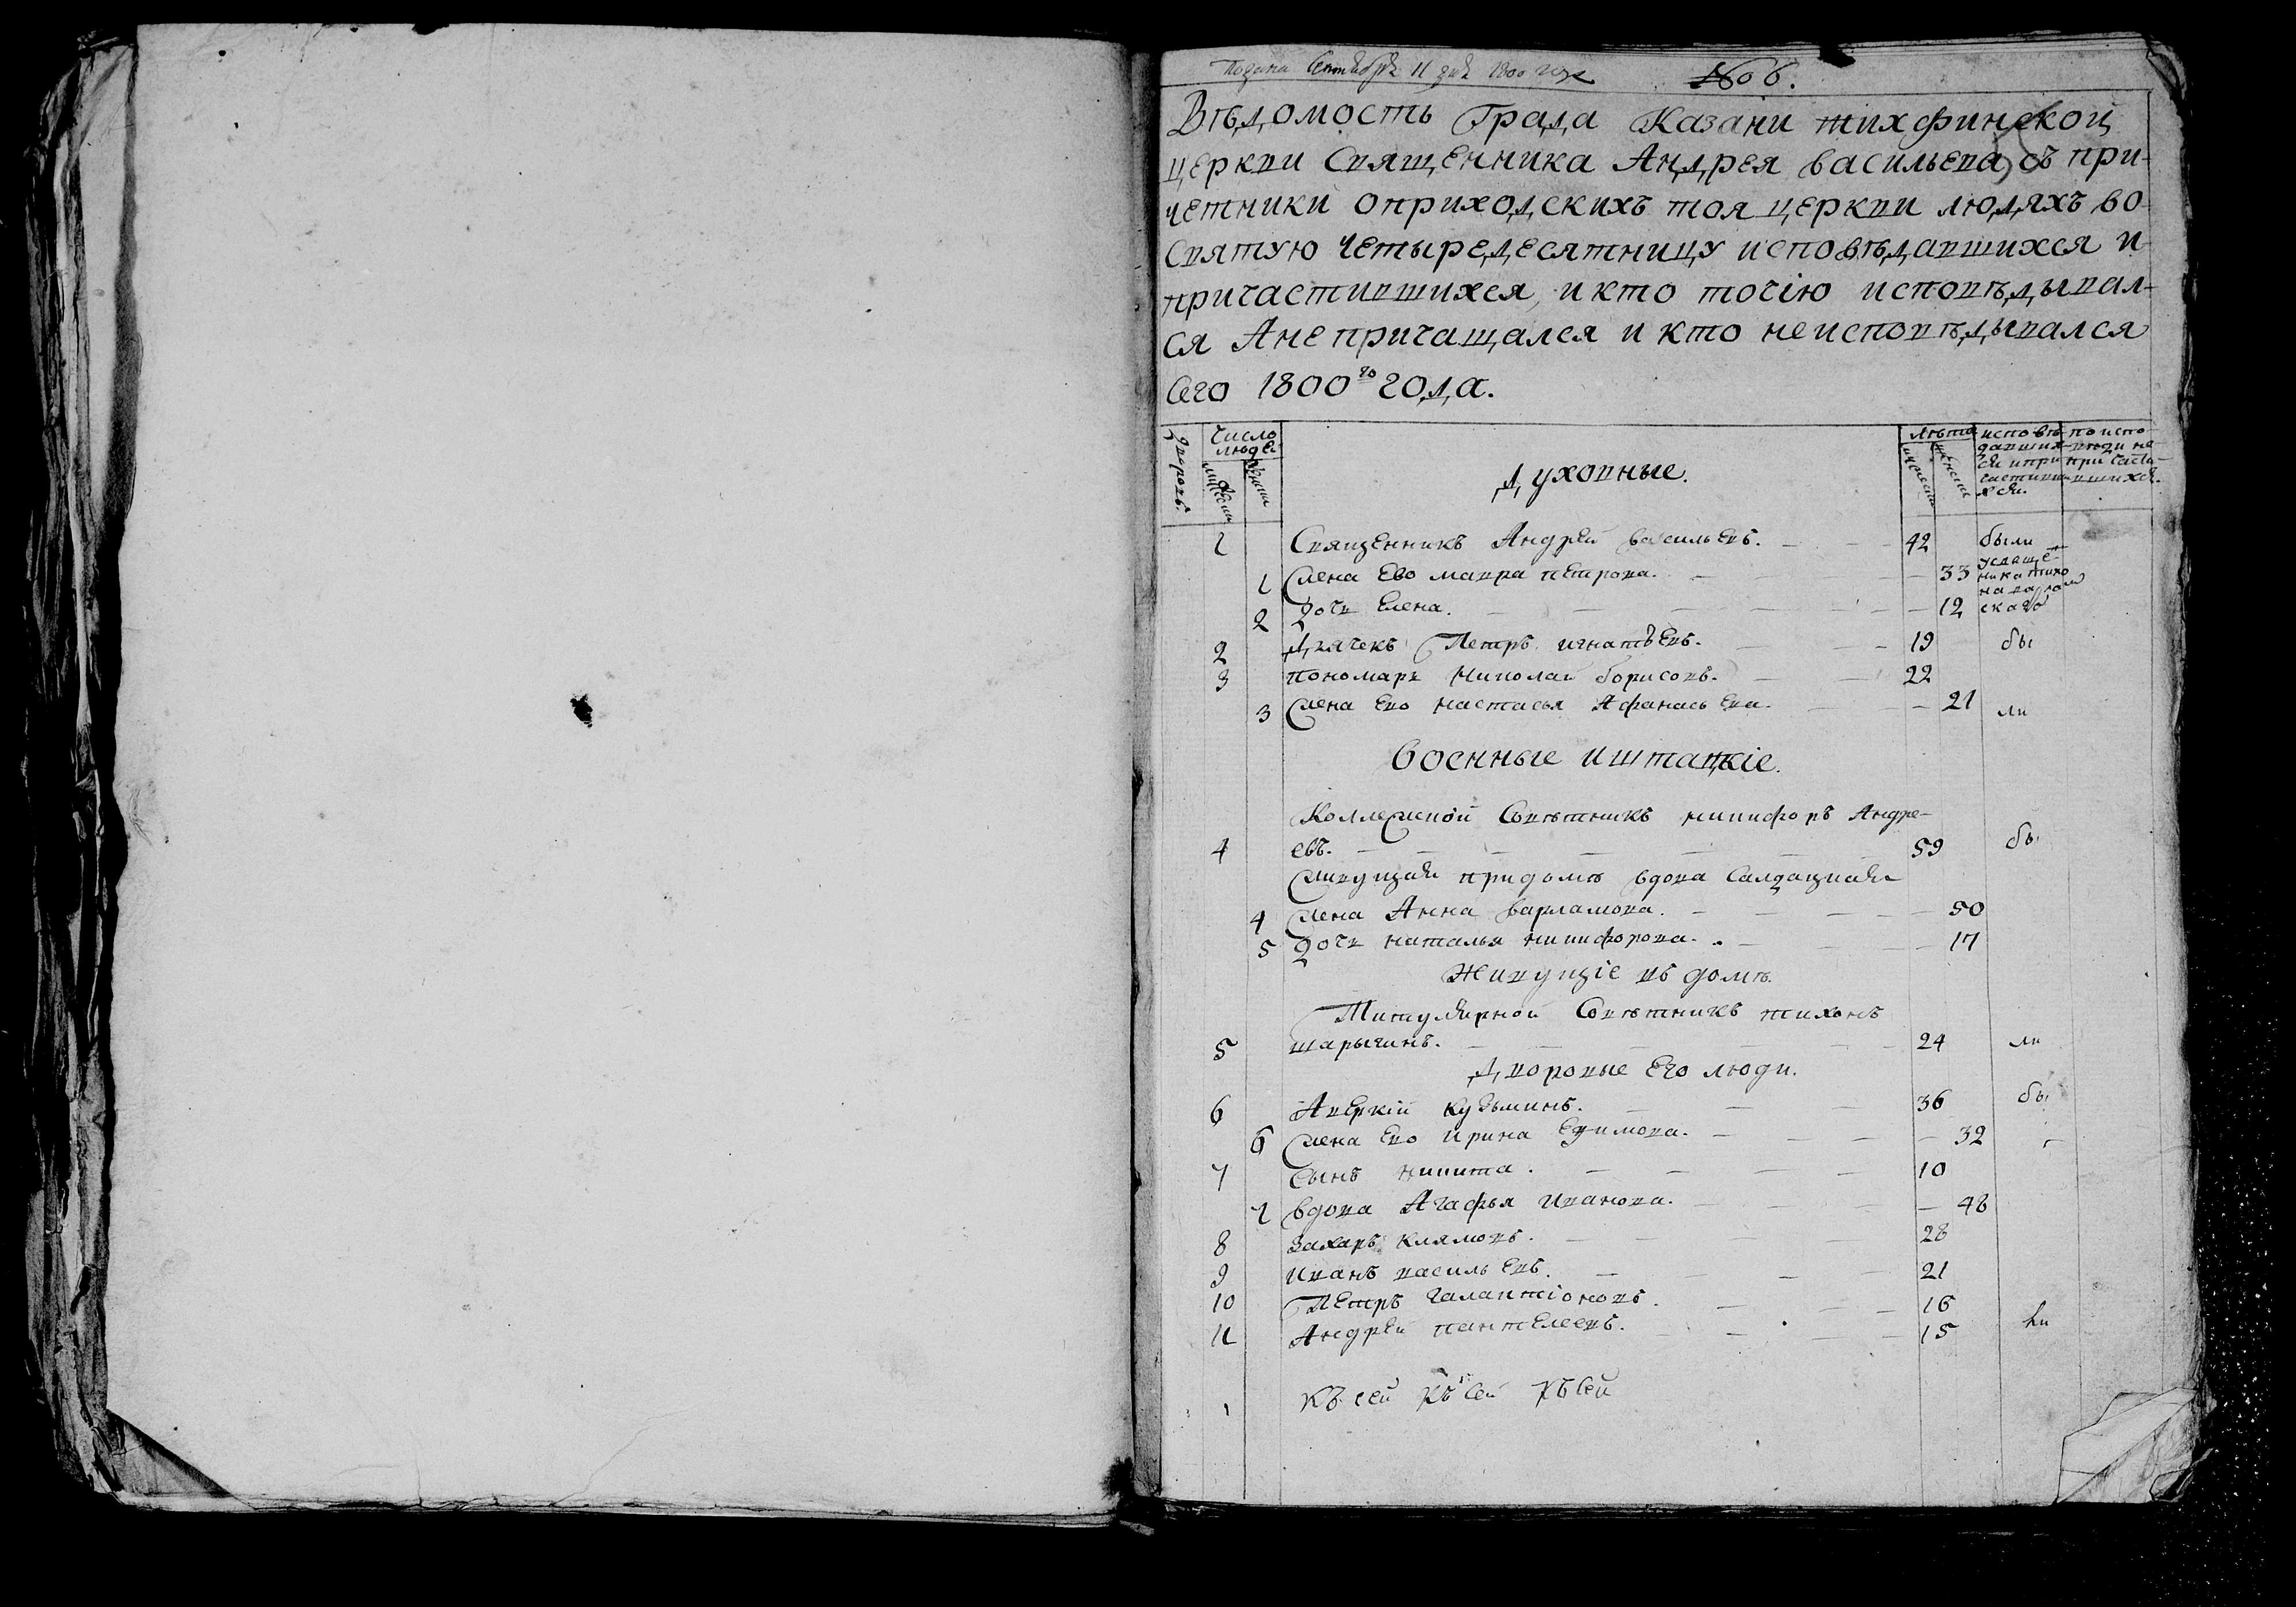 Подана Сентября 11 дня 1800 года № 6.
Вѣдомость Града Казани тихфинской
церкви Священника Андрея васильева съ при-
четники оприходскихъ тоя церкви людяхъ во
святую четыредесятницу исповѣдавшихся и
причастившихся, и кто точію исповѣдывал-
ся А не причащался и кто неисповѣдывался
сего 1800го года.
дворовъ. Число людей мужеска женска
Духовные.
лѣта мужеска женска
исповѣдавшихся и причастившихся.
по исповѣди не причастившихся.
1 Священникъ Андрей васильевъ. 42 были
1 Жена Ево мавра петрова. 33 у священника тихона
2 Дочь Елена. 12 скаго
2 Дячекъ Петръ игнатьевъ. 19 бы
3 пономарь николай борисовъ. 22
3 Жена Ево настасья Афанасьева. 21 ли
военные и штацкіе.
Коллежской Совѣтникъ никифоръ Андре-
4 евъ. 59 бы
Живущая придомѣ вдова Салдацкая
4 жена Анна варламова. 50
5 Дочь наталья никифорова. 17
Живущіе въ домѣ.
Титулярной Совѣтникъ тихонъ
5 шарыгинъ. 24 ли
Дворовые Его люди.
6 Аверкій кузьминъ. 36 бы
6 Жена Ево ирина Ефимова. 32
7 Сынъ никита. 10
7 вдова Агафья иванова. 48
8 Захаръ климовъ. 28
9 иванъ васильевъ. 21
10 Петръ галактіоновъ. 16
11 Андрей пантелеевъ. 15 ли
Къ сей Къ сей Къ сей